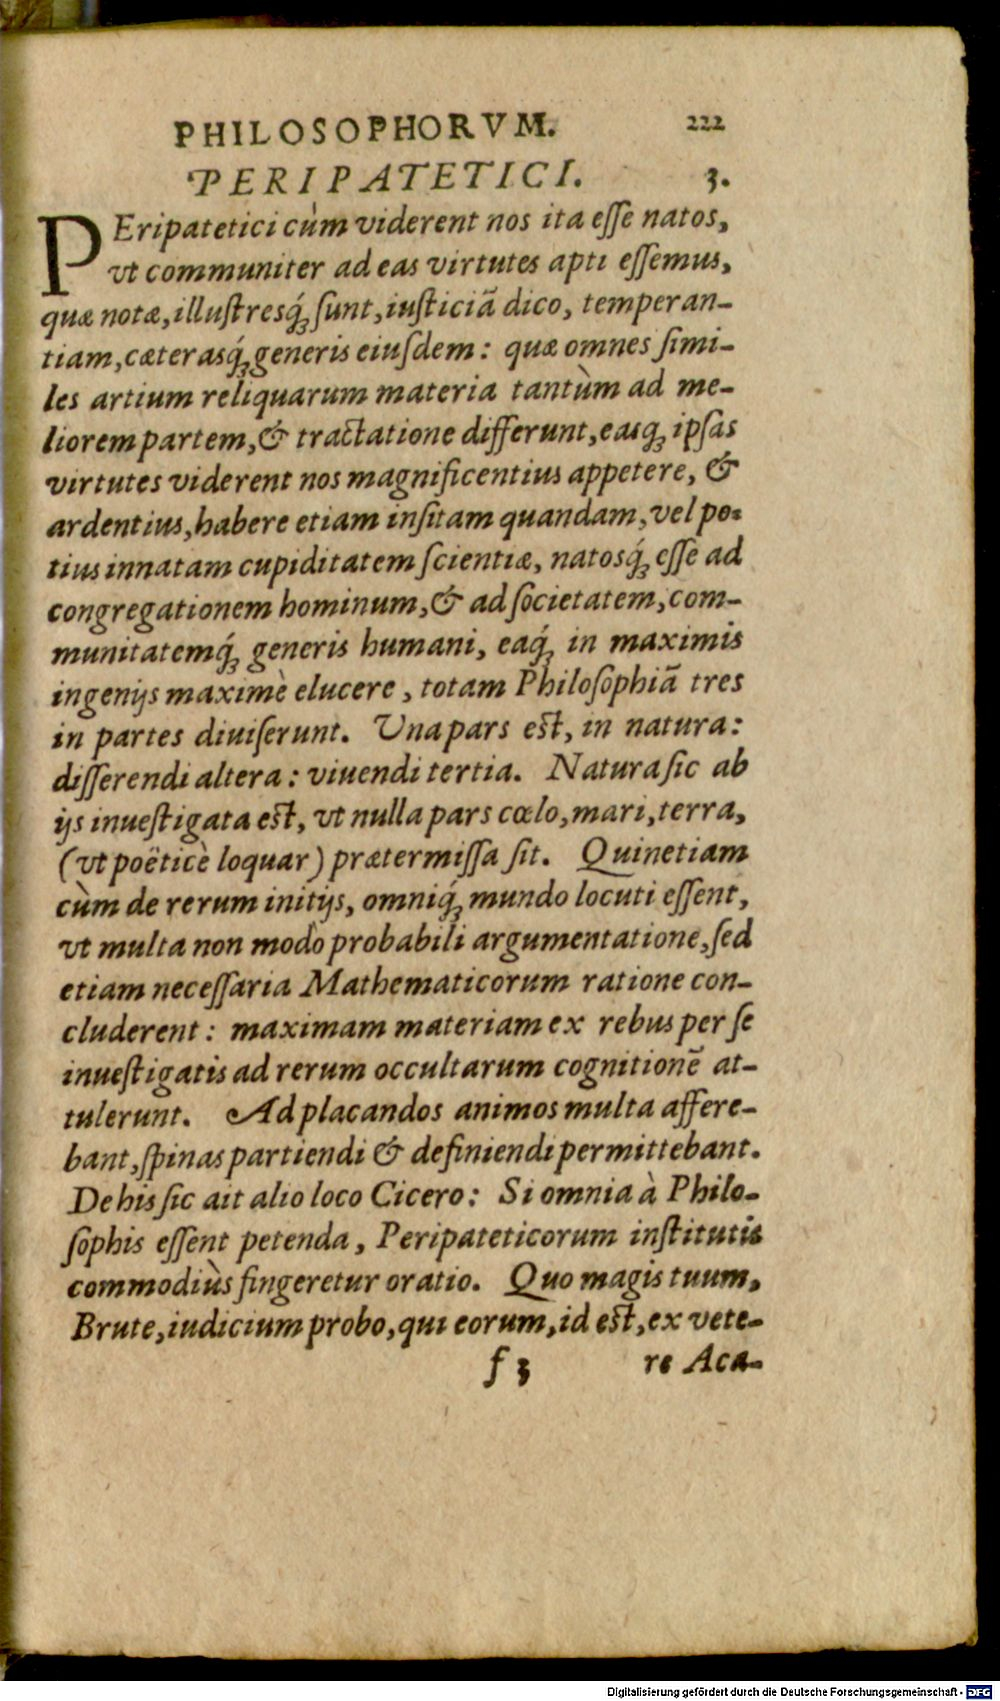 PHILOSOPHORVM. 222
PERIPATETICI. 3.
PEripatetici cùm viderent nos ita eſſe natos,
vt communiter ad eas virtutes apti eſſemus,
quæ notæ, illuſtresq́ꝫ ſunt, iuſticiã dico, temperan-
tiam, cæterasq́ꝫ generis eiuſdem: quæ omnes ſimi-
les artium reliquarum materia tantùm ad me-
liorem partem, & tractatione differunt, easqꝫ ipſas
virtutes viderent nos magnificentius appetere, &
ardentius, habere etiam inſitam quandam, vel po-
tius innatam cupiditatem ſcientiæ, natosq́ꝫ eſſe ad
congregationem hominum, & ad ſocietatem, com-
munitatemq́ꝫ generis humani, eaq́ꝫ in maximis
ingenijs maximè elucere, totam Philoſophiã tres
in partes diuiſerunt. Una pars eſt, in natura:
diſſerendi altera: viuendi tertia. Natura ſic ab
ijs inueſtigata eſt, vt nulla pars cœlo, mari, terra,
(vt poëticè loquar) prætermiſſa ſit. Quinetiam
cùm de rerum initijs, omniq́ꝫ mundo locuti eſſent,
vt multa non modò probabili argumentatione, ſed
etiam neceſſaria Mathematicorum ratione con-
cluderent: maximam materiam ex rebus per ſe
inueſtigatis ad rerum occultarum cognitionẽ at-
tulerunt. Ad placandos animos multa affere-
bant, ſpinas partiendi & definiendi permittebant.
De his ſic ait alio loco Cicero: Si omnia à Philo-
ſophis eſſent petenda, Peripateticorum inſtitutis
commodiùs fingeretur oratio. Quo magis tuum,
Brute, iudicium probo, qui eorum, id eſt, ex vete-
f 3 re Aca-
Digitalisierung gefördert durch die Deutsche Forschungsgemeinschaft - DFG